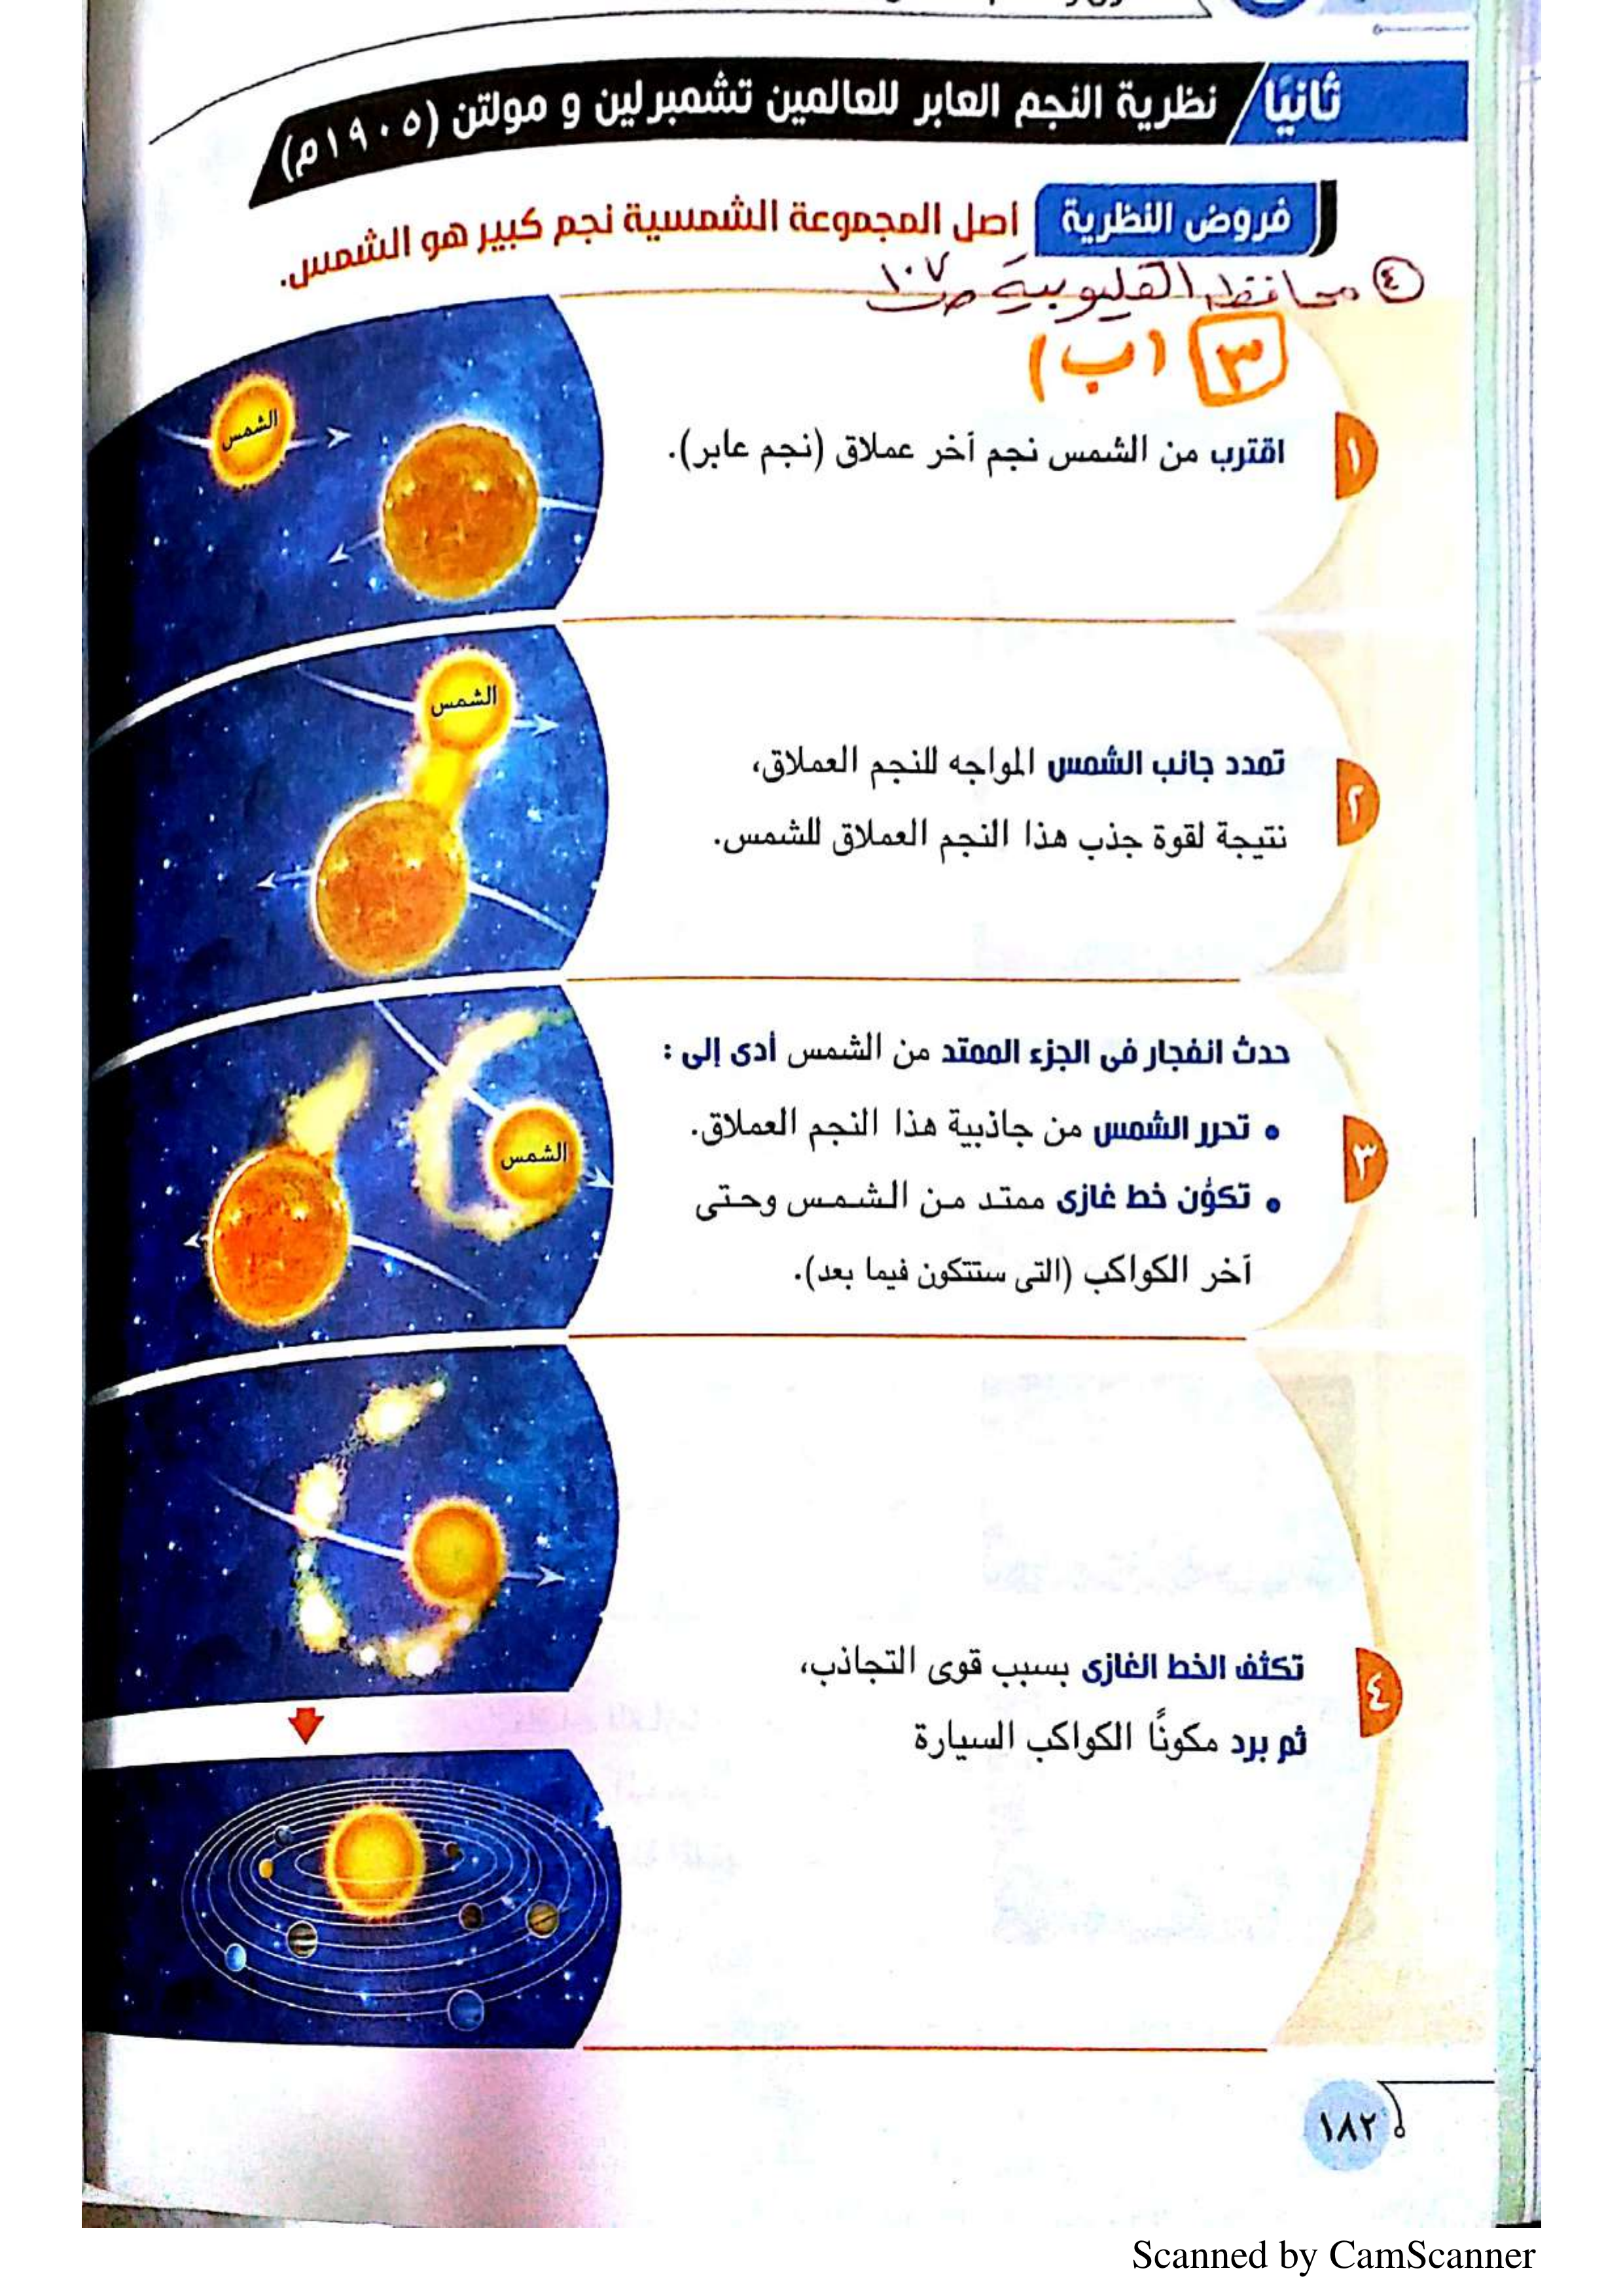 ثانيًا / نظرية النجم العابر للعالمين تشمبرلين و مولتن (١٩٠٥م)
فروض النظرية أصل المجموعة الشمسية نجم كبير هو الشمس.
٤ محافظة القليوبية ص ١٠٧
٣ (ب)
١ اقترب من الشمس نجم آخر عملاق (نجم عابر).
الشمس
٢ تمدد جانب الشمس المواجه للنجم العملاق،
نتيجة لقوة جذب هذا النجم العملاق للشمس.
الشمس
٣ حدث انفجار فى الجزء الممتد من الشمس أدى إلى :
• تحرر الشمس من جاذبية هذا النجم العملاق.
• تكوُّن خط غازى ممتد من الشمس وحتى
آخر الكواكب (التى ستتكون فيما بعد).
الشمس
٤ تكثف الخط الغازى بسبب قوى التجاذب،
ثم برد مكونًا الكواكب السيارة
١٨٢
Scanned by CamScanner